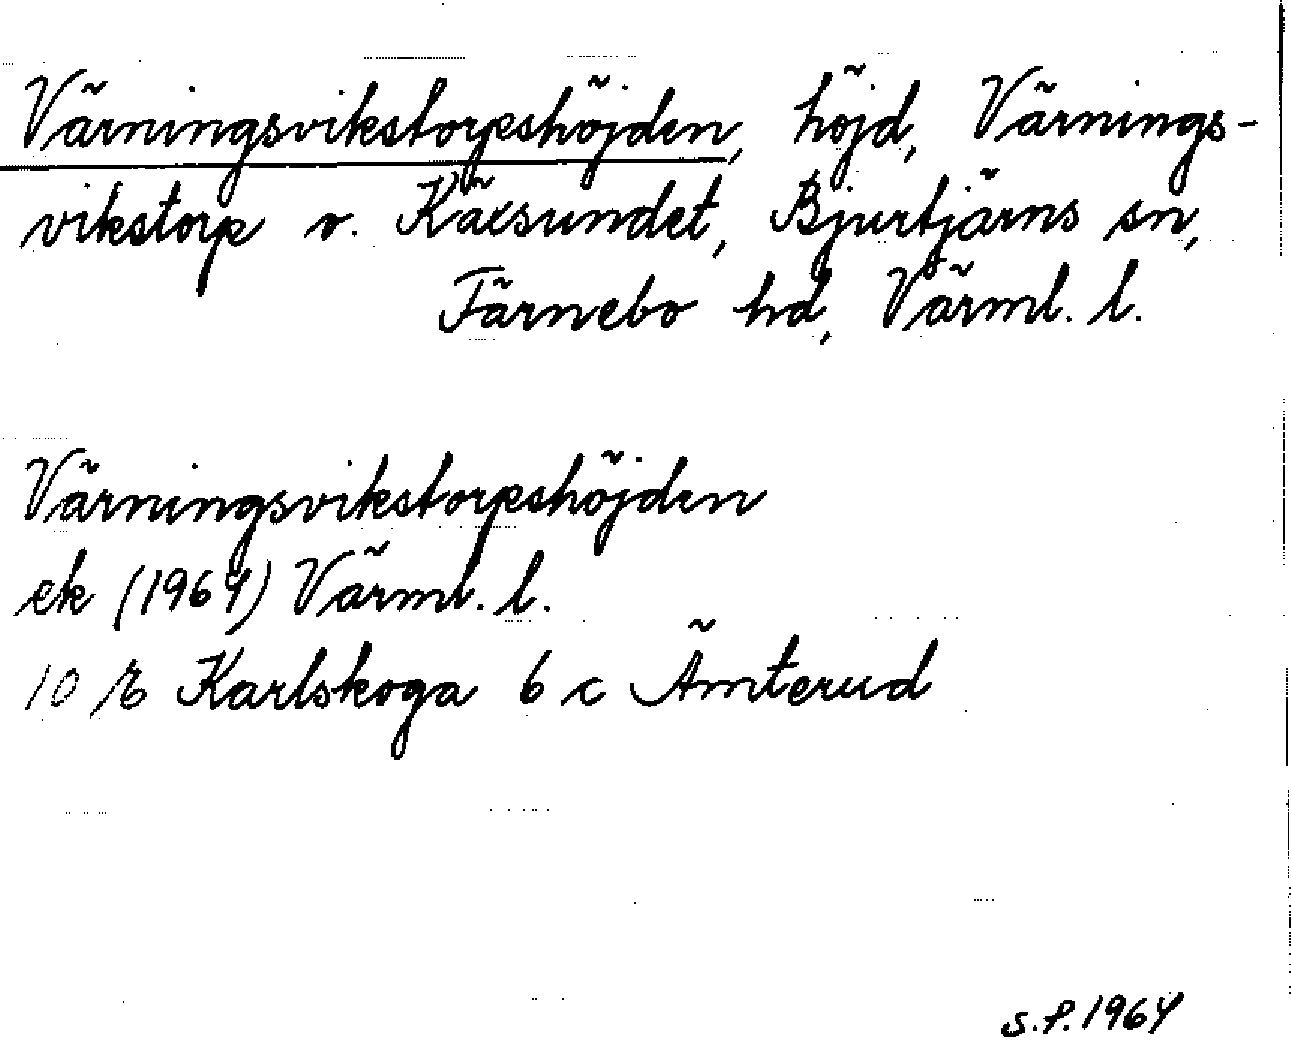 Värningsvikstorpshöjden, höjd, Värnings-
vikstorp v. Käxsundet, Bjurtjärns sn,
Färnebo hd, Värml. l.
Värningsvikstorpshöjden
ek (1964) Värml. l.
10 E Karlskoga 6 c Ämterud
S.P. 1964